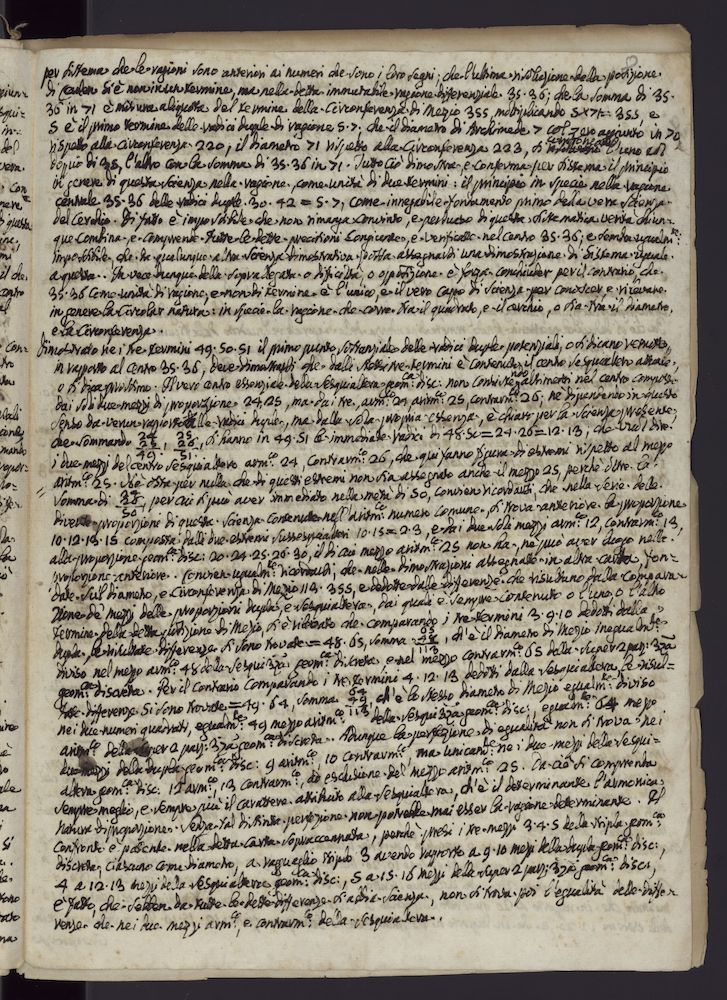 per sistema che le ragioni sono anteriori ai numeri che sono i loro segni; che l'ultima risoluzione della posizione
di si è non in un termine, ma nella detta immutabile ragione differenziale 35.36; che la somma di 35.
36 in 71 è misura aliquota del termine della Circonferenza di Mezio 355, moltiplicando 5×71=355, e
5 è il primo termine delle radici duple di ragione 5.7; che il diametro di Archimede 7 col zero aggiunto in 70
rispetto alla Circonferenza 220, il diametro 71 rispetto alla Circonferenza 223, si l'uno al
doppio di 35, l'altro con la somma di 35.36 in 71. Tutto ciò dimostra, e conferma per sistema il principio
di genere di questa scienza nella ragione, come unità di due termini: il principio in specie nella ragione
centrale 35.36 delle radici duple 30.42=5.7; come innegabile fondamento primo della vera scienza
del Cerchio. Di fatto è impossibile che non rimanga convinto, e persuaso di questa sistematica verità chiun-
que combina, e comprende tutte le dette precisioni congiunte, e verificate nel centro 35.36; e sembra ugualm:te
impossibile, che da qualunque altra scienza dimostrativa possa assegnarsi una dimostrazione di sistema uguale
a questa. In vece dunque della sopra difficoltà, o opposizione è forza conchiuder per il contrario, che
35.36 come unità di ragione, e non di termine è l'unico, e il vero capo di scienza per conoscer, e rilevare
in genere la Circolar natura: in specie la ragione che corre tra il quadrato, e il cerchio, o sia tra il diametro,
e la Circonferenza.
Dimostrato ne i tre termini 49.50.51 il primo punto sostanziale delle radici duple potenziali, o si dicano
in rapporto al centro 35.36, deve dimostrarsi che dalli stessi tre termini è contenuto il centro sesquialtero
o si dica prossimo. Il vero centro essenziale della sesquialtera geom:ca disc: non consiste altrimenti nel centro composto
dai soli due mezzi di proporzione 24.25, ma dai tre, arm:co 24 aritm:co 25 contrarm:co 26; ne dipendendo in questo
senso da verun rapporto delle radici duple, ma dalla sola propria essenza, è chiaro per la scienza presente,
che sommando 24/25/49, 25/26/51, si hanno in 49.51 le immediate radici di 48.50=24.26=12.13, che vuol dire
i due mezzi del centro sesquialtero arm:co 24, contrarm:co 26, che qui fanno figura di estremi rispetto al mezzo
aritm:co 25. Ne osta per nulla che da questi estremi non sia assegnato anche il mezzo 25, perchè oltre la
somma di 24/26/50, per cui si può aver immediato nella metà di 50, convien ricordarsi che nella serie delle
diverse proporzioni di questa scienza contenute nell'aritm:co numero comune, si trova anteriore la proporzione
10.12.13.15 composta dalli due estremi sussesquialteri 10.15=2.3, e dai due soli mezzi arm:co 12, contrarm:co 13,
alla proporzione geom:ca disc: 20.24.25.26.30, il di cui mezzo aritm:co 25 non ha, ne può aver luogo nella
proporzione anteriore. Convien ugualm:te ricordarsi, che nelle dimostrazioni assegnate in altra carta, fon-
date sul diametro, e Circonferenza di Mezio 113.355, e dedotte dalle differenze che risultano dalla compara-
zione de mezzi delle proporzioni dupla, e sesquialtera, dai quali è sempre contenuto o l'uno, o l'altro
termine della detta posizione di Mezio, si è veduto che comparando i tre termini 3.9.10 dedotti dalla
dupla, le risultate differenze si sono trovate=48.65, somma 48/65/113, ch'è il diametro di Mezio inegualm:te
diviso nel mezzo arm:co 48 della sesqui3za geom:ca discreta, e nel mezzo contrarm:co 65 della super2parz:3za
geom:ca discreta. Per il contrario comparando i tre termini 4.12.13 dedotti dalla sesquialtera, le risul-
tate differenze si sono trovate=49.64, somma 49/64/113, ch'è lo stesso diametro di Mezio egualm:te diviso
nei due numeri quadrati, egualm:te 49 mezzo aritm:co della sesqui3za geom:ca disc:, egualm:te 64 mezzo
aritm:co della super2parz:3za geom:ca discreta. Dunque la perfezione di egualità non si trova nei
due mezzi della dupla geom:ca disc: 9 aritm:co, 10 contrarm:co, ma unicam:te ne i due mezzi della sesqui-
altera geom:ca disc: 12 arm:co, 13 contrarm:co, ad esclusione del mezzo aritm:co 25. Da ciò si comprenda
sempre meglio, e sempre più il carattere attribuito alla sesquialtera, ch'è il determinante l'armonica
natura di proporzione. Senza tal distinta perfezione non potrebbe mai esser la ragione determinante. Il
confronto è patente nella detta carta sopraccennata, perchè presi i tre mezzi 3.4.5 della tripla geom:ca
discreta, ciascuno come diametro, a ragguaglio triplo 3 avendo rapporto a 9.10 mezzi della dupla geom:ca disc:,
4 a 12.13 mezzi della sesquialtera geom:ca disc:, 5 a 15.16 mezzi della super2parz:3za geom:ca disc:,
è fatto, che sebben da tutte le dette differenze si abbia scienza, non si trova poi l'egualità delle diffe-
renze che nei due mezzi arm:co, e contrarm:co della sesquialtera.